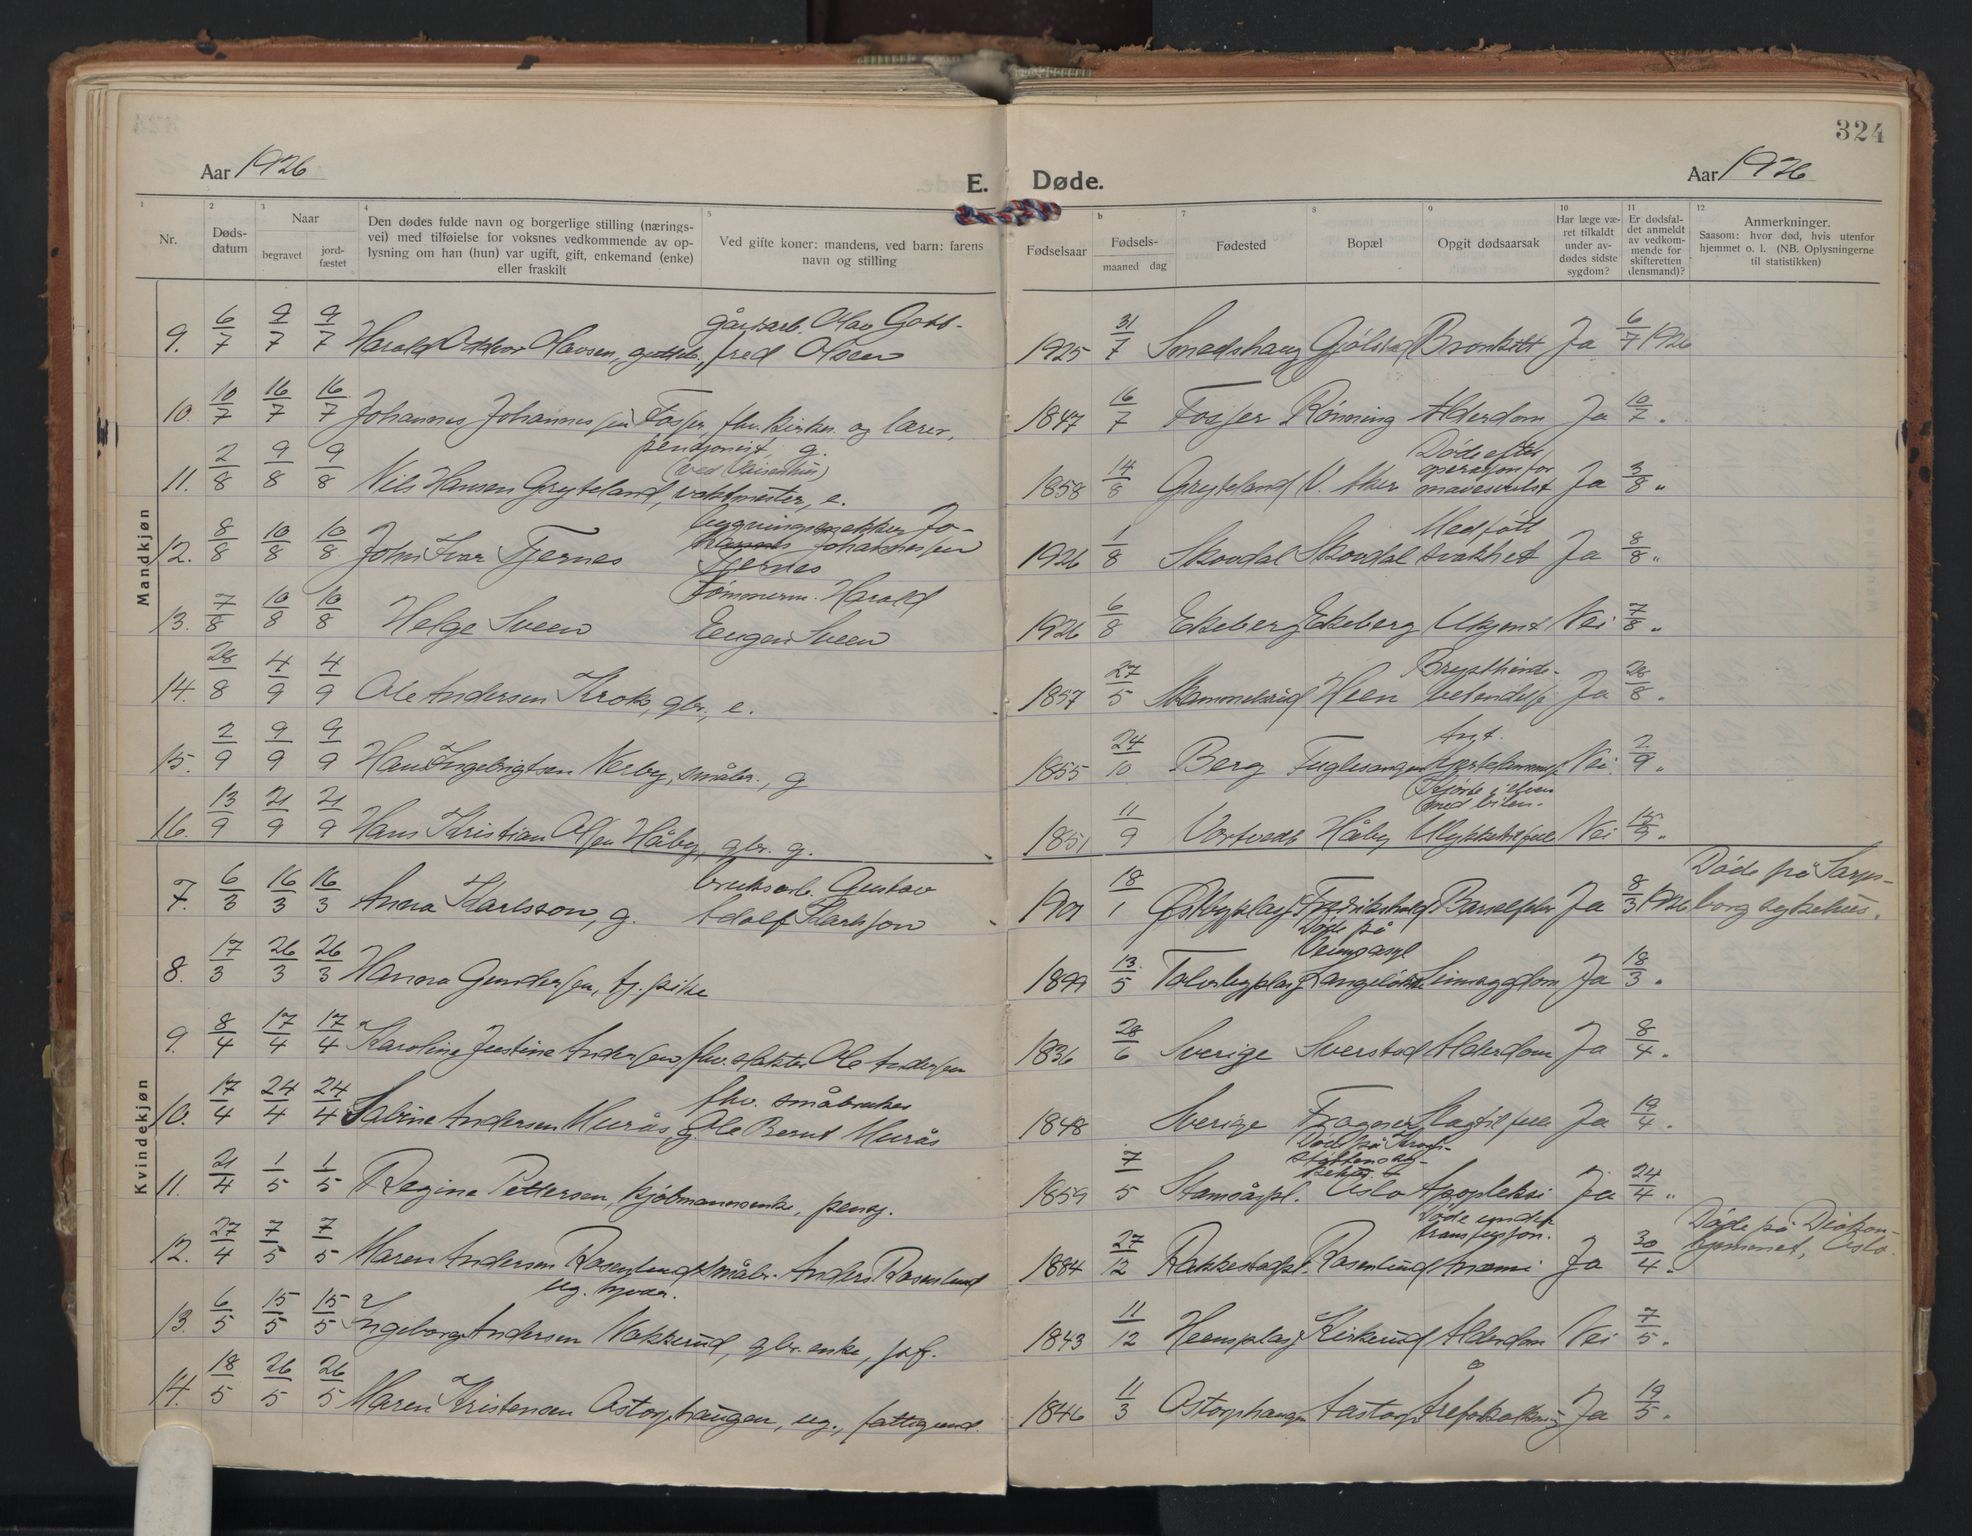 324
Aar 1926 E. Døde. Aar 1926
1 2 3 4 5 6 7 8 9 10 11 12
Nr. Døds-datum Naar begravet jord-fæstet
Den dødes fulde navn og borgerlige stilling (nærings-
vei) med tilføielse for voksnes vedkommende av op-
lysning om han (hun) var ugift, gift, enkemand (enke)
eller fraskilt
Ved gifte koner: mandens, ved barn: farens
navn og stilling
Fødselsaar Fødsels- maaned dag Fødested Bopæl Opgit dødsaarsak
Har læge væ-
ret tilkaldt
under av-
dødes sidste
sygdom?
Er dødsfal-
det anmeldt
av vedkom-
mende for
skifteretten
(lensmand)?
Anmerkninger.
Saasom: hvor død, hvis utenfor
hjemmet o. l. (NB. Oplysningerne
til statistikken)
Mandkjøn
9. 6/7 9/7 9/7 Harald Oddvar Olavsen, gårdsarb. Olav Gott-
fred Olsen 1925 31/7 Smedshaug Gjølstad Bronkitt Ja 6/7 1926
10. 10/7 16/7 16/7 Johannes Johannessen Fosser, fhv. kirkes. og lærer,
pensjonist, g. 1847 16/7 Fosser Rönning Alderdom Ja 10/7 "
11. 2/8 9/8 9/8 Nils Hansen Gryteland, vaktmester, e.
(ved Vaisenhus) 1858 14/8 Gryteland V. Aker Døde efter
operasjon for
mavesvulst Ja 3/8 "
12. 8/8 10/8 10/8 John Ivar Tjernes bygningssnekker Jo-
hannes Johannessen
Tjernes 1926 1/8 Skovdal Skovdal Medfött
svakhet Ja 8/8 "
13. 7/8 10/8 10/8 Helge Sveen Tømmerm. Harald
Eugen Sveen 1926 6/8 Ekeberg Ekeberg Ukjent Nei 7/8 "
14. 28/8 4/9 4/9 Ole Andersen Krok, gbr., e. 1857 27/5 Skammelsrud Heen Brysthinde-
betendelse Ja 28/8 "
15. 2/9 9/9 9/9 Hans Ingebrigtsen Nerby, småbr., g 1855 24/10 Berg Fuglesangen Nei 2/9 "
16. 13/9 21/9 21/9 Hans Kristian Olsen Håby, gbr. g. 1851 11/9 Håby Kjörte i elven
med bilen. Nei 15/9 "
Kvindekjøn
7. 6/3 16/3 16/3 Anna Karlsson, g. bruksarb. Gustav
Adolf Karlsson 18/1 Fredrikshald Ja 8/3 1926 Døde på Sarps-
borg sykehus.
8. 17/3 26/3 26/3 Hanna Gundersen, tj. pike 1899 13/5 Døde på
Ja 18/3 "
9. 8/4 17/4 17/4 Karoline Justine Andersen fhv. slakter Ole Andersen 1836 28/6 Sverige Sverstad Alderdom Ja 8/4 "
10. 17/4 24/4 24/4 Sabine Andersen Murås g. fhv. småbruker
Ole Bernt Murås 1848 Sverige Fragner Slagtilfelle Ja 19/4 "
11. 21/4 1/5 1/5 Regine Pettersen, kjöbmannsenke, pensj. 1859 7/5 Oslo Apopleksi Ja 24/4 "
12. 27/4 7/5 7/5 Maren Andersen Rosenlund småbr. Anders Rosenlund
1884 27/12 Rakkestadpl. Rosenlund Døde under
transfusjon.
Anæmi Ja 30/4 " Døde på Diakon-
hjemmet, Oslo.
13. 6/5 15/5 15/5 Ingeborg Andersen Nakkerud, gbr. enke, 1843 11/12 Heensplass Kirkerud Alderdom Nei 7/5 "
14. 18/5 26/5 26/5 Maren Kristensen Åstorphaugen, ug., fattigund. 1846 11/3 Åstorphaugen Aastorp Årefokalkning Ja 19/5 "